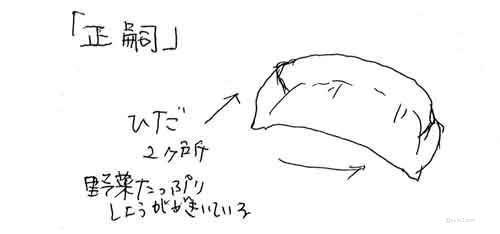 「正嗣」
ひだ
2ヶ所
野菜たっぷり
しょうががきいている